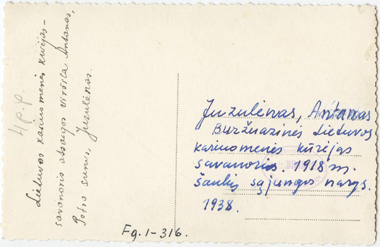 4 p.p.
Lietuvos kariuomenės kūrėjas-
savanoris atsargos viršila Antanas,
Petro sunus, Juzulėnas.
Juzulėnas, Antanas
Buržuazinės Lietuvos
kariuomenės kūrėjas
savanoris. 1918 m.
šaulių sąjungos narys.
1938.
Fg.1-316.